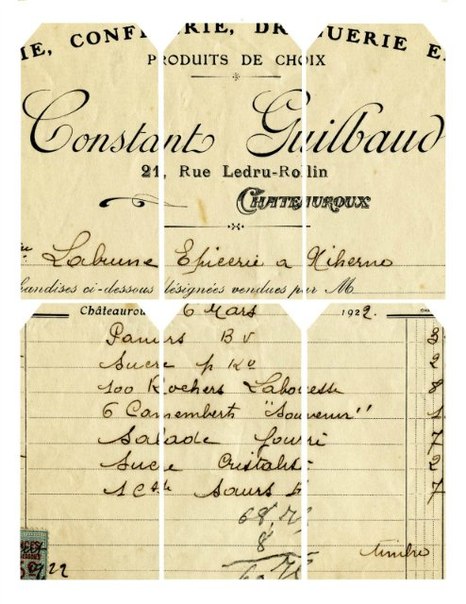 IE, CONFISERIE, DROGUERIE E
PRODUITS DE CHOIX
Constant Guilbaud
21, Rue Ledru-Rollin
CHATEAUROUX
Labrune Epicerie a Niherne
handises ci-dessous désignées vendues par M
Châteaurou 6 Mars 1922.
Paniers B V 3
Sucre p Ko 2
100 Rochers Laboesse 8
6 Camemberts "Souvenir" 1
Salade fourré 7
Sucre Cristalisé 2
1 Cse Saurs 7
68,70
8 timbre
70
22